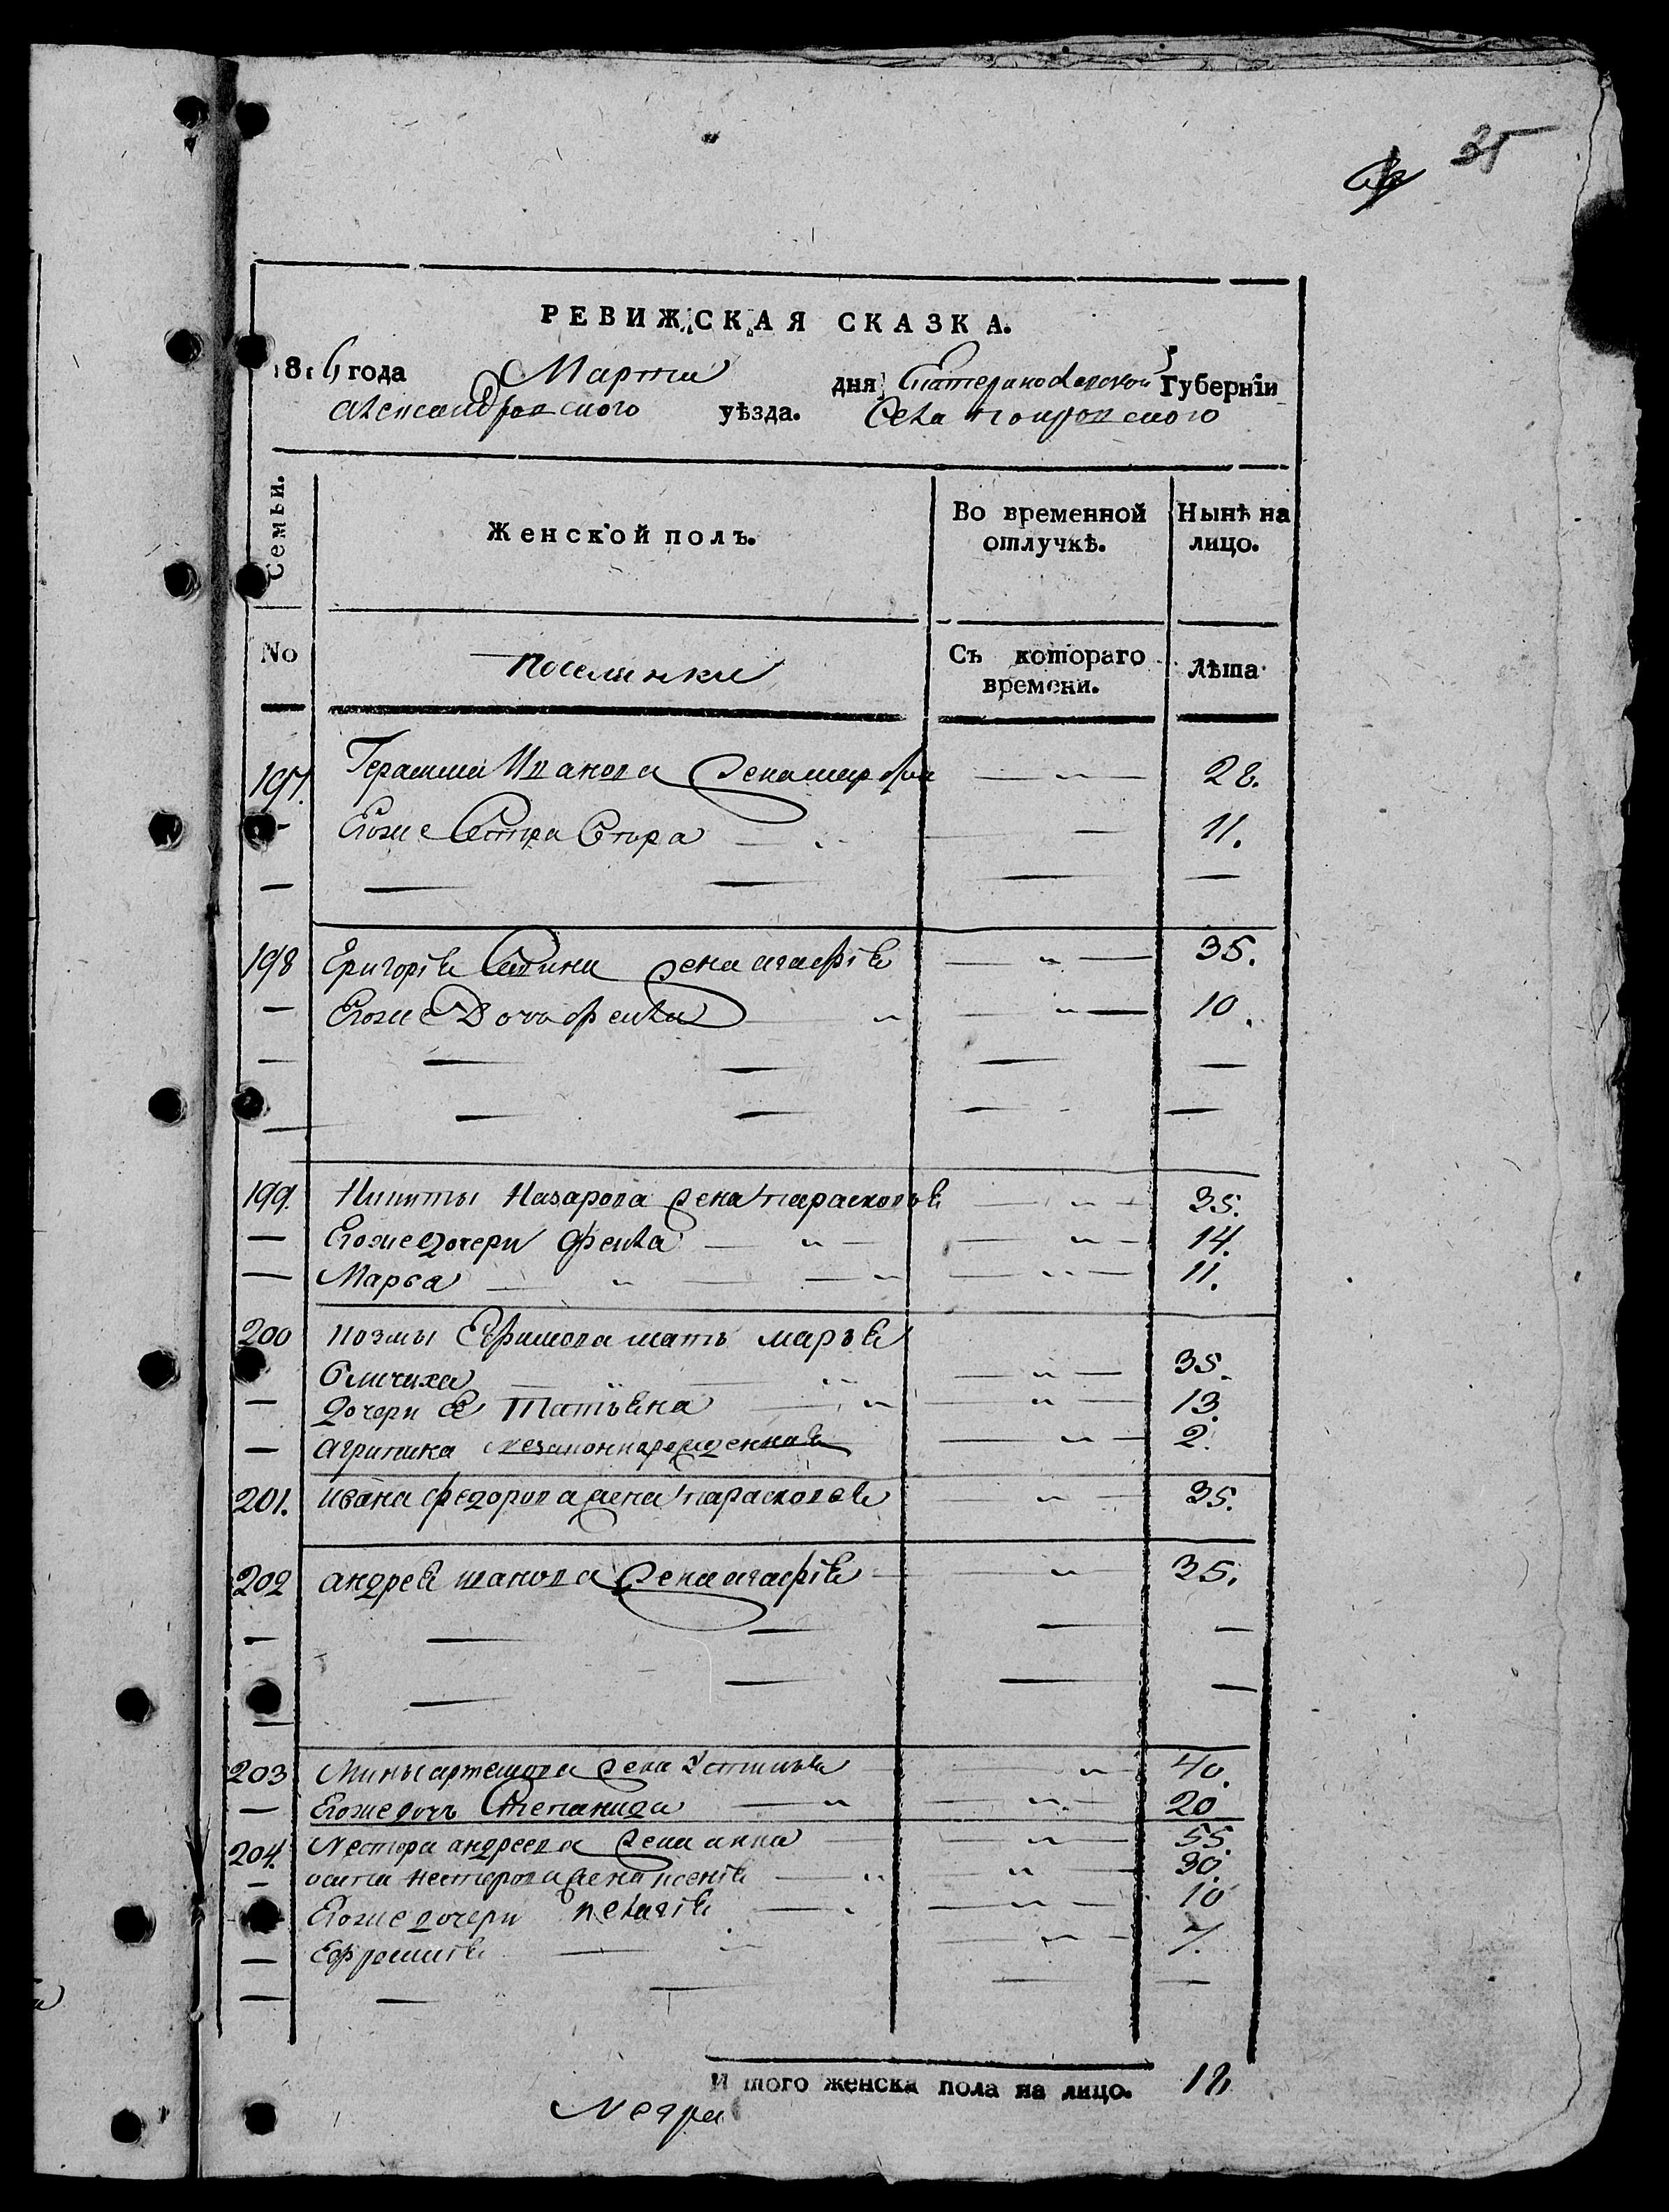 35
РЕВИЖСКАЯ СКАЗКА.
1816 года Марта дня Екатеринославской Губернїи
александровского уѣзда. Села покровского
Семьи.
Женской полъ.
Во временной отлучкѣ.
Нынѣ на лицо.
No
Поселянки
Съ котораго времени.
Лѣта
197. Герасима Иванова жена марфа 28.
Егоже Сестра 11.
198 Григорїя жена агафїя 35.
Егоже Дочь фекла 10.
199. Никиты Назарова жена парасковья 35.
Егоже дочери фекла 14.
Марфа 11.
200 козмы Ефимова мать марья
35.
дочери ее татьяна 13.
агрипина незаконнорожденная 2.
201. ивана федорова жена парасковья 35.
202 андрея иванова жена агафїя 35.
203 Мины артемова жена Устинья 40.
Егоже дочь Степанида 20
204. Нестора андреева жена анна 55.
осипа нестерова жена ксенїя 30.
Егоже дочери пелагїя 10
Ефросинїя 7.
И того женска пола на лицо. 18